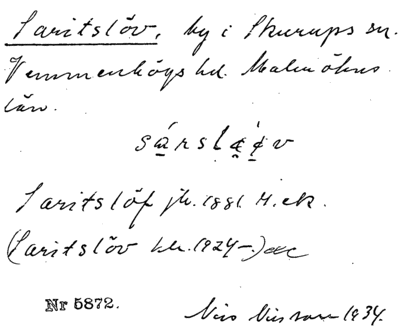 Saritslöv, by i Skurups sn.
Vemmenhögs hd. Malmöhus
län.
Saritslöf jb. 1881 H. ek.
(Saritslöv 1924–)
Nr 5872.
Nils Nilsson 1934.